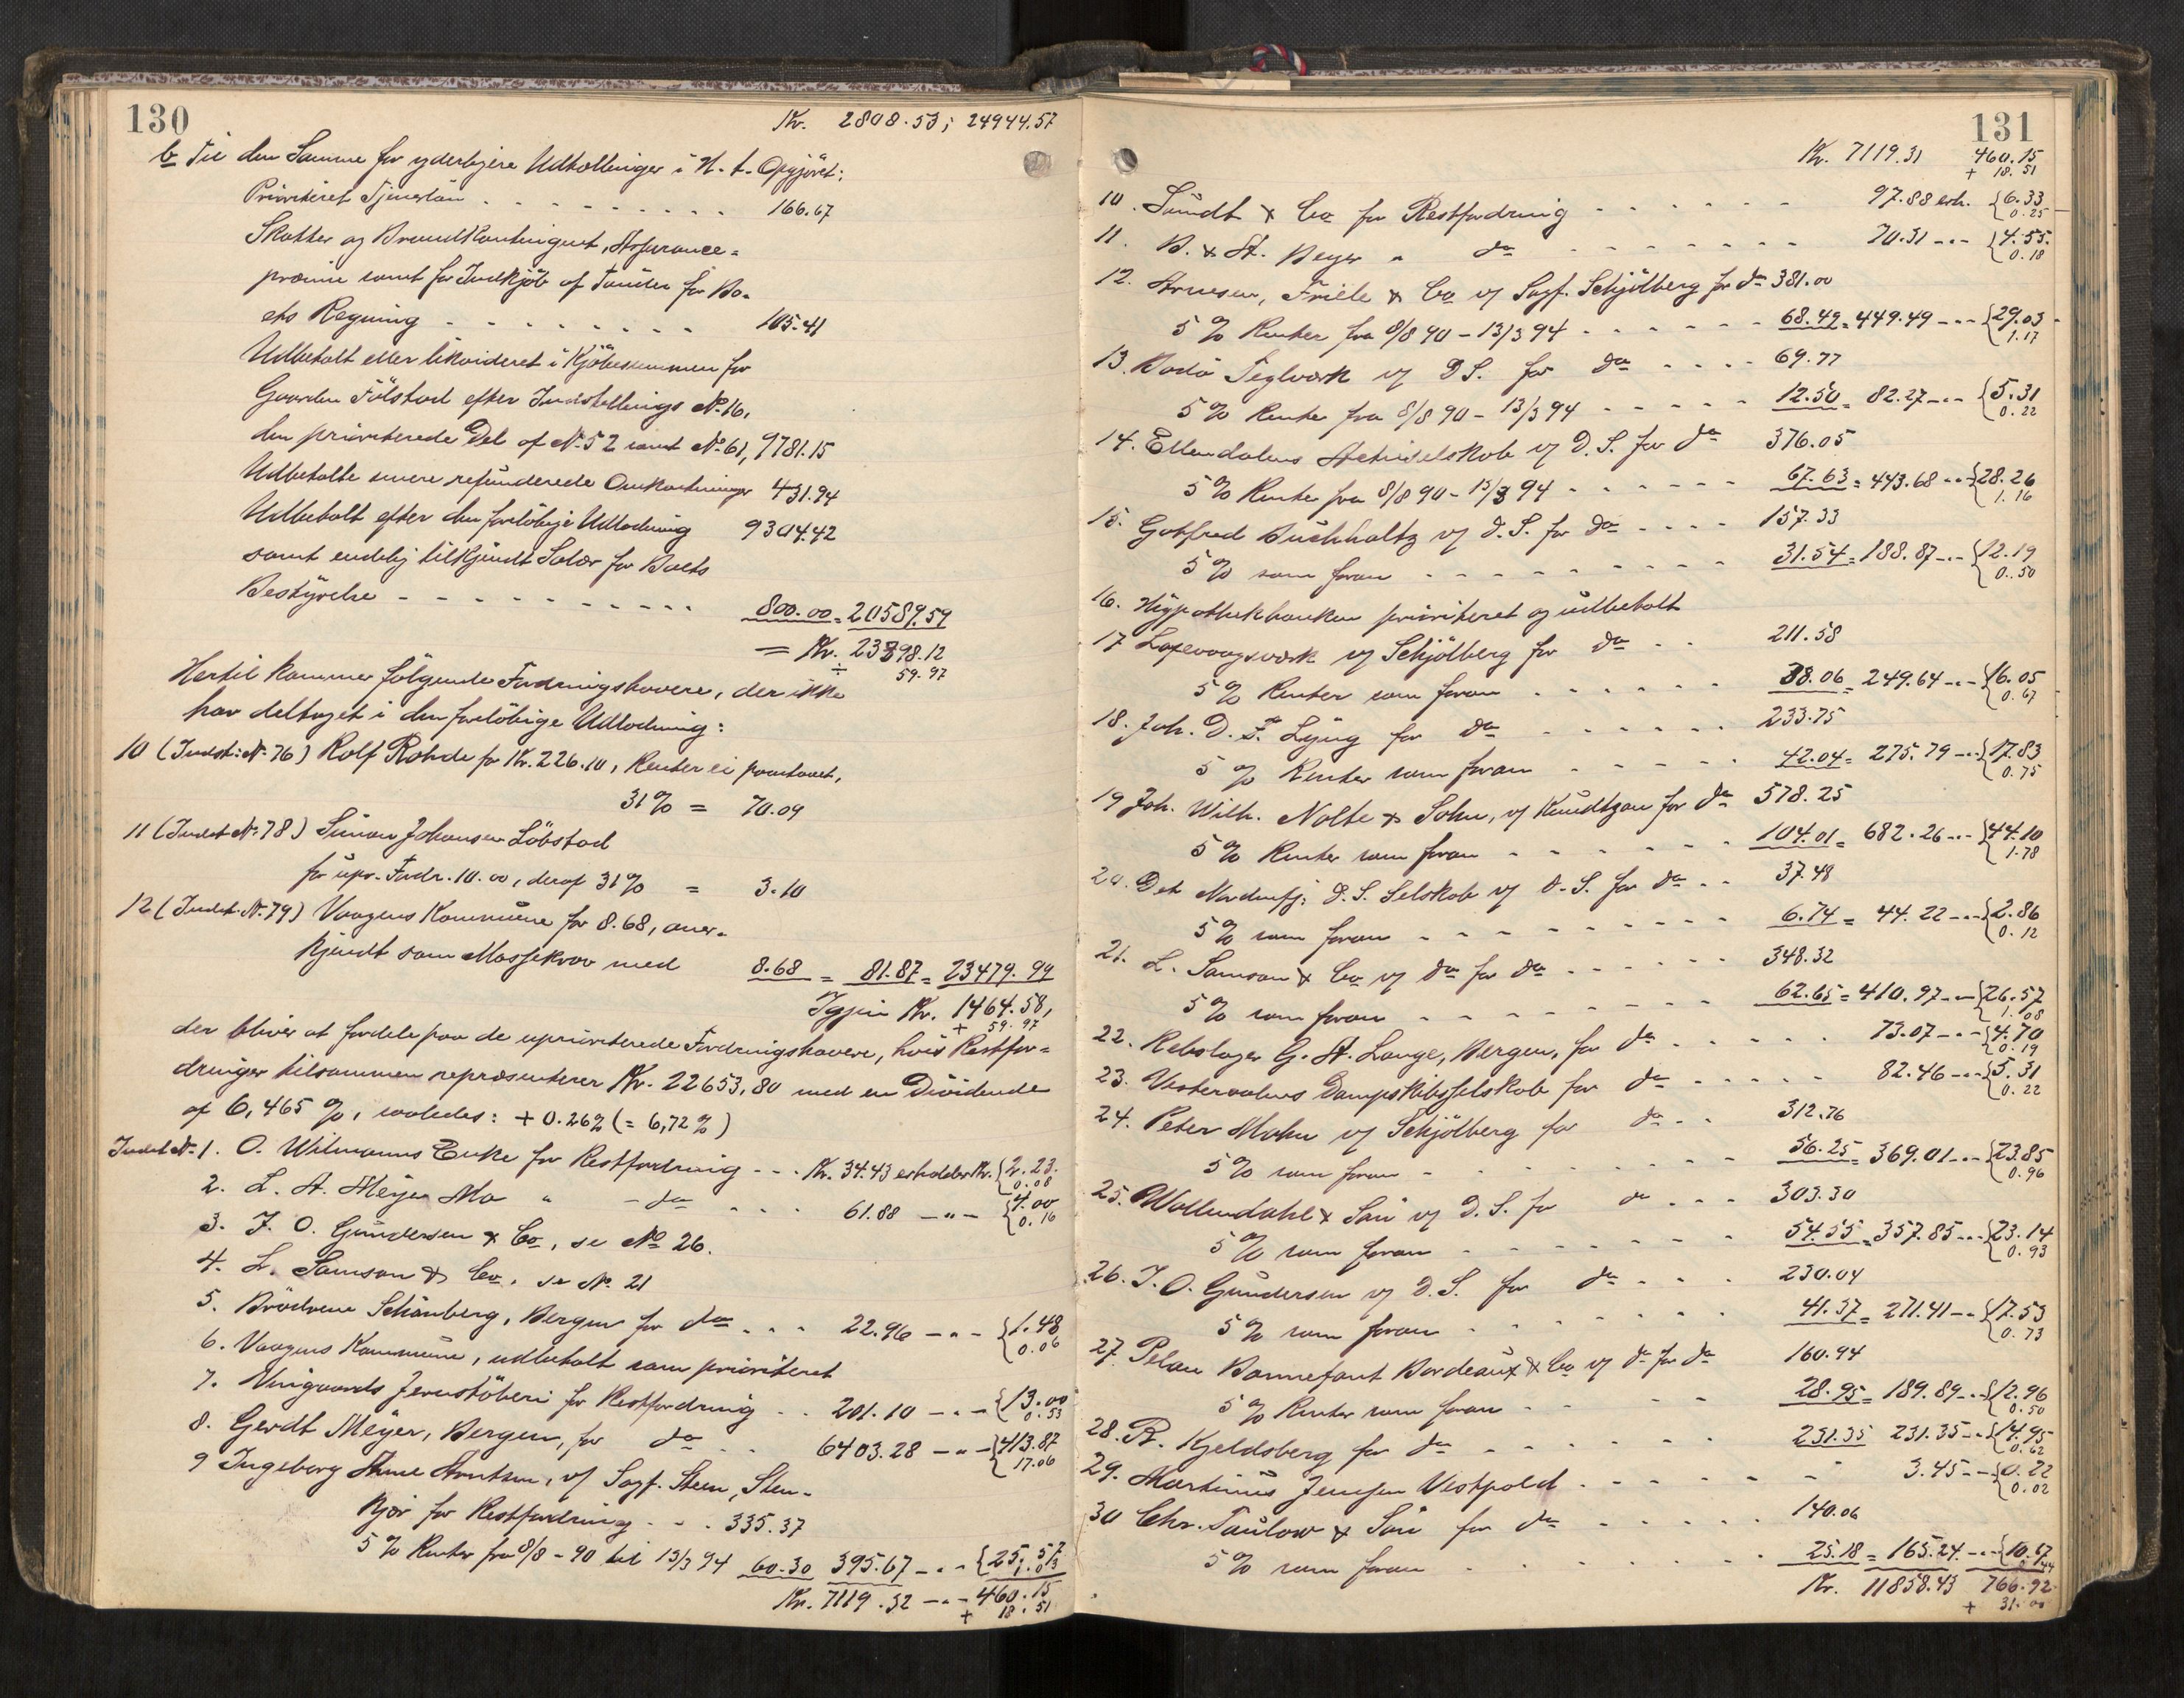 130
Kr. 2808.53; 24944.57
b Til den Samme for yderligere Udtællinger i H. t. Opgjöret:
Prioriteret Tjenerlön - - - - - - - - - 166.67
Skatter og Brandkontingent, Assurance=
præmie samt for Indkjöb af Tønder for Bo-
ets Regning - - - - - - - - 105.41
Udbetalt eller likvideret i Kjöbesummen for
Gaarden Fölstad efter Indstillings No. 16,
den prioriterede Del af No. 52 samt No. 61, 9781.15
Udbetalte senere refunderede Omkostninger 431.94
Udbetalt efter den forelöbige Udlodning 9304.42
samt endelig tilkjendt Salær for Boets
Bestyrelse - - - - - - - - - - 800.00 = 20589.59
= Kr. 23398.12
÷ 59.97
Hertil kommer fölgende Fordringshavere, der ikke
har deltaget i den forelöbige Udlodning:
10 (Indst. No. 76) Rolf Rohde for Kr. 226.10, Renter ei paastaaet,
31% = 70.09
11 (Indst. No. 78) Simon Johansen Löbstad
for upr. Fordr. 10.00, deraf 31% = 3.10
12 (Indst. No. 79) Vaagens Kommune for 8.68, aner-
kjendt som Massekrav med 8.68 = 81.87 = 23479.99
Igjen Kr. 1464.58,
+ 59.97
der bliver at fordele paa de uprioriterede Fordringshavere, hvis Restfor=
dringer tilsammen repræsenterer Kr. 22653,80 med en Dividende
af 6,465 %, saaledes: + 0.26% (= 6,72%)
Indst. No. 1. O. Wilmanns Enke for Restfordring - - - Kr. 34.43 erholder Kr. {2.23.
0.08
2. L. A. Meyer Mo " - do - - - 61.88 - " - {4.00
0.16
3. J. O. Gundersen & Co, se No. 26.
4. L. Samson & Co. se No. 21
5. Brödrene Schönberg, Bergen for do - - - 22.96 - " - {1.48
0.06
6. Vaagens Kommune, udbetalt som prioriteret
7. Vingaards Jernstöberi for Restfordring - - 201.10 - " - {13.00
0.53
8. Gerdt Meyer, Bergen, for do - - 6403.28 - " - {413.87
17.06
9 Ingeborg Anne Arntsen, v/ Sagf. Steen, Sten-
kjær for Restfordring - - - 335.37
5 % Renter fra 8/8 - 90 til 13/3 94 60.30 395.67 - " - {25.57
1.03
Kr. 7119.32 - " - 460.15
+ 18.51
131
Kr. 7119.31 460.15
+ 18.51
10. Sundt & Co for Restfordring - - - - - - 97.88 erh. {6.33
0.25
11. B. & A. Beyer " do - - - - - - - - 70.31 - " - {4.55.
0.18
12. Arnesen, Friele & Co v/ Sagf. Schjölberg for do 381.00
5 % Renter fra 8/8 90 - 13/3 94 - - - - - - - 68.49 = 449.49 - " - {29.03
1.17
13. Bodö Teglværk v/ D S. for do - - - - 69.77
5 % Rente fra 8/8 90 - 13/3 94 - - - - - 12.50 = 82.27 - " - {5.31
0.22
14. Ellendalens Aktieselskab v/ D. S. for do 376.05
5 % Rente fra 8/8 90 - 13/3 94 - - - - - - 67.63 = 443.68 - " - {28.26
1.16
15. Gotfred Buchholtz v/ D. S. for do - - - - 157.33
5 % som foran - - - - - - - - - 31.54 = 188.87 - " - {12.19
0.50
16. Hypothekbanken prioriteret og udbetalt
17 Laxevaagsværk v/ Schjölberg for do - - 211.58
5 % Renter som foran - - - - - - 38.06 = 249.64 - " - {16.05
0.67
18. Joh. D. F. Lyng for do - - - - - - - 233.75
5 % Renter som foran - - - - - 42.04 = 275.79 - " - {17.83
0.75
19 Joh. Wilh. Nolte & Sohn, v/ Knudtzon for do 578.25
5 % Renter som foran - - - - - - - 104.01 = 682.26 - " - {44.10
1.78
20. Det Nordenfj. D. S. Selskab v/ D. S. for do - - 37.48
5 % som foran - - - - - - - - - 6.74 = 44.22 - " - {2.86
0.12
21. L. Samson & Co v/ do for do - - - - - - 348.32
5 % som foran - - - - - - - - - 62.65 = 410.97 - " - {26.57
1.08
22. Rebslager G. A. Lange, Bergen, for do - - - - - - 73.07 - " - {4.70
0.19
23. Vesteraalens Dampskibsselskab for do - - - - - 82.46 - " - {5.31
0.22
24. Peter Mohn v/ Schjölberg for do - - 312.76
5 % som foran - - - - - - - - 56.25 = 369.01 - " - {23.85
0.96
25. Wollendahl & Sön v/ D. S. for do - - - 303.30
5 % som foran - - - - - - - - 54.55 = 357.85 - " - {23.14
0.93
26. J. O. Gundersen v/ D. S. for do - - - 230.04
5 % som foran - - - - - - - - 41.37 = 271.41 - " - {17.53
0.73
27. Pelau Bonnefant Bordeaux & Co v/ do for do 160.94
5 % Renter som foran - - - - - 28.95 = 189.89 - " - {12.96
0.50
28. R. Kjeldsberg for do - - - - - - - 231.35 231.35 - " - {14.95
0.62
29. Martinus Jensen Vestpold - - - - - - - 3.45 - " - {0.22
0.02
30 Chr. Taulow & Sön for do - - - - - - 140.06
5 % som foran - - - - - - - - 25.18 = 165.24 - " - {10.67
0.44
Kr. 11858.43 766.92
+ 31.00